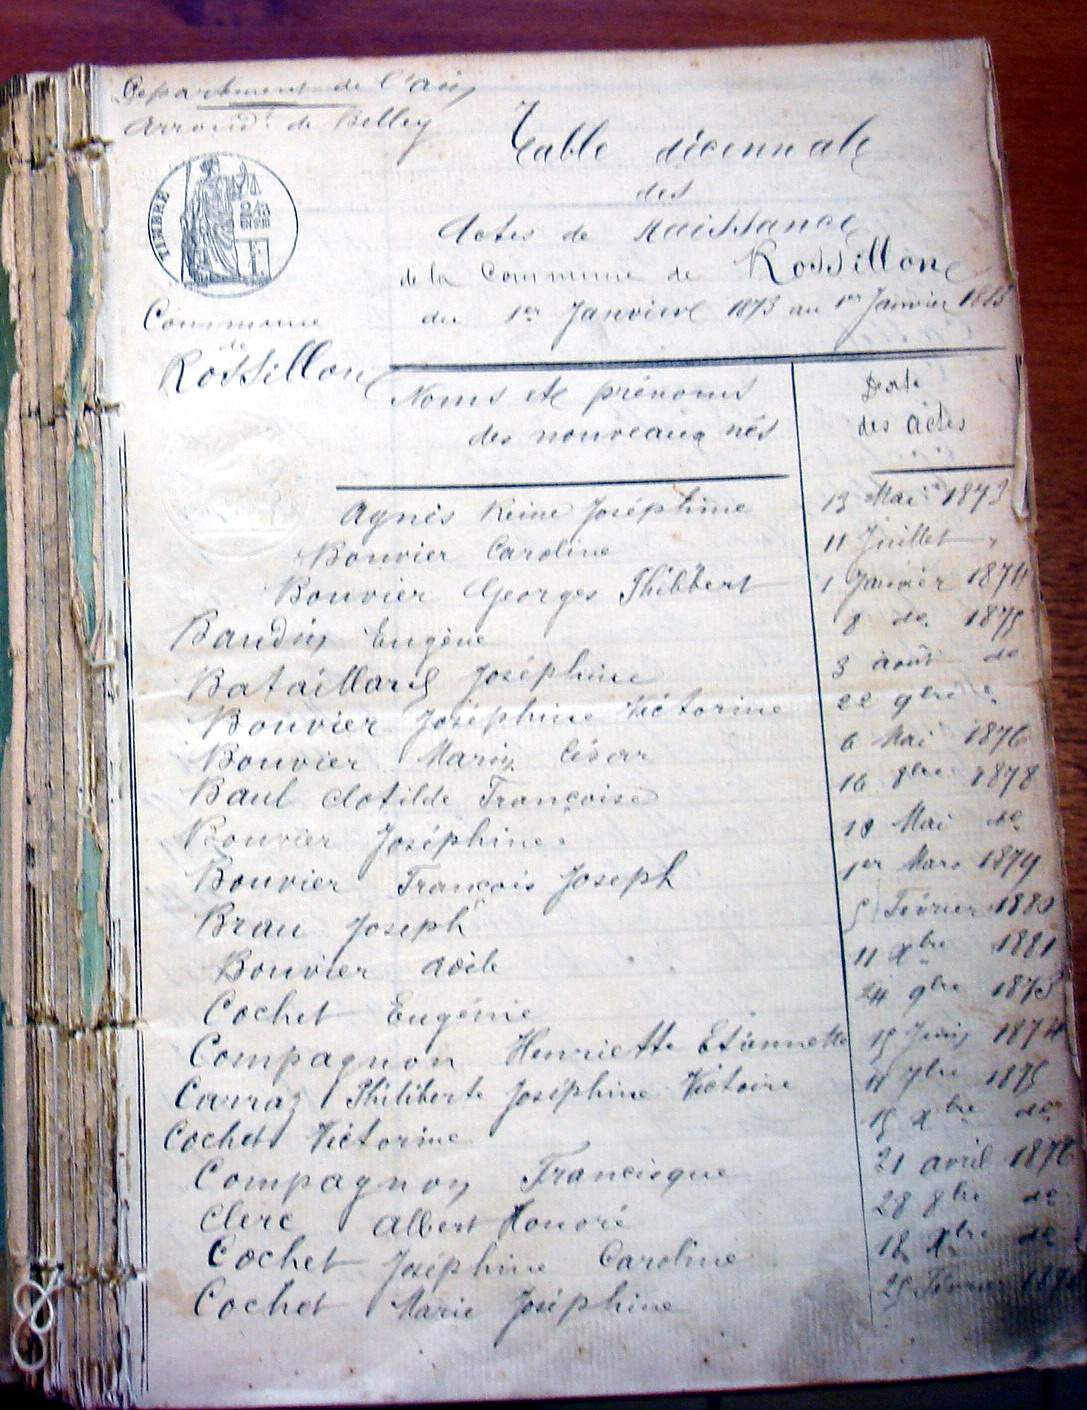 Département de l'ain
Arrond.t de Belley
Table décennale
des
Actes de Naissance
de la Commune de Rossillon
du 1er Janvier 1873 au 1er Janvier 1883
TIMBRE
Commune
de
Rossillon
Noms et prénoms
des nouveaux nés
Date
des actes
Agnès Reine Joséphine 13 Mai 1873
Bouvier Caroline 11 Juillet "
Bouvier Georges Philibert 1 Janvier 1874
Baudin Eugène 8 do 1875
Bataillard Joséphine 3 août do
Bouvier Joséphine Victorine 22 9bre "
Bouvier Marin César 6 Mai 1876
Baul Clotilde Françoise 16 8bre 1878
Bouvier Joséphine 18 Mai do
Bouvier François Joseph 1er Mars 1879
Brau Joseph 5 Février 1880
Bouvier 11 Xbre 1881
Cochet Eugénie 24 9bre 1873
Compagnon Henriette Etiennette 15 Juin 1874
Carraz Philiberte Joséphine Victoire 11 7bre 1875
Cochet Victorine 15 Xbre do
Compagnon Francisque 21 avril 1876
Clerc Albert Honoré 28 8bre do
Cochet Joséphine Caroline 18 Xbre do
Cochet Marie Joséphine 25 Février